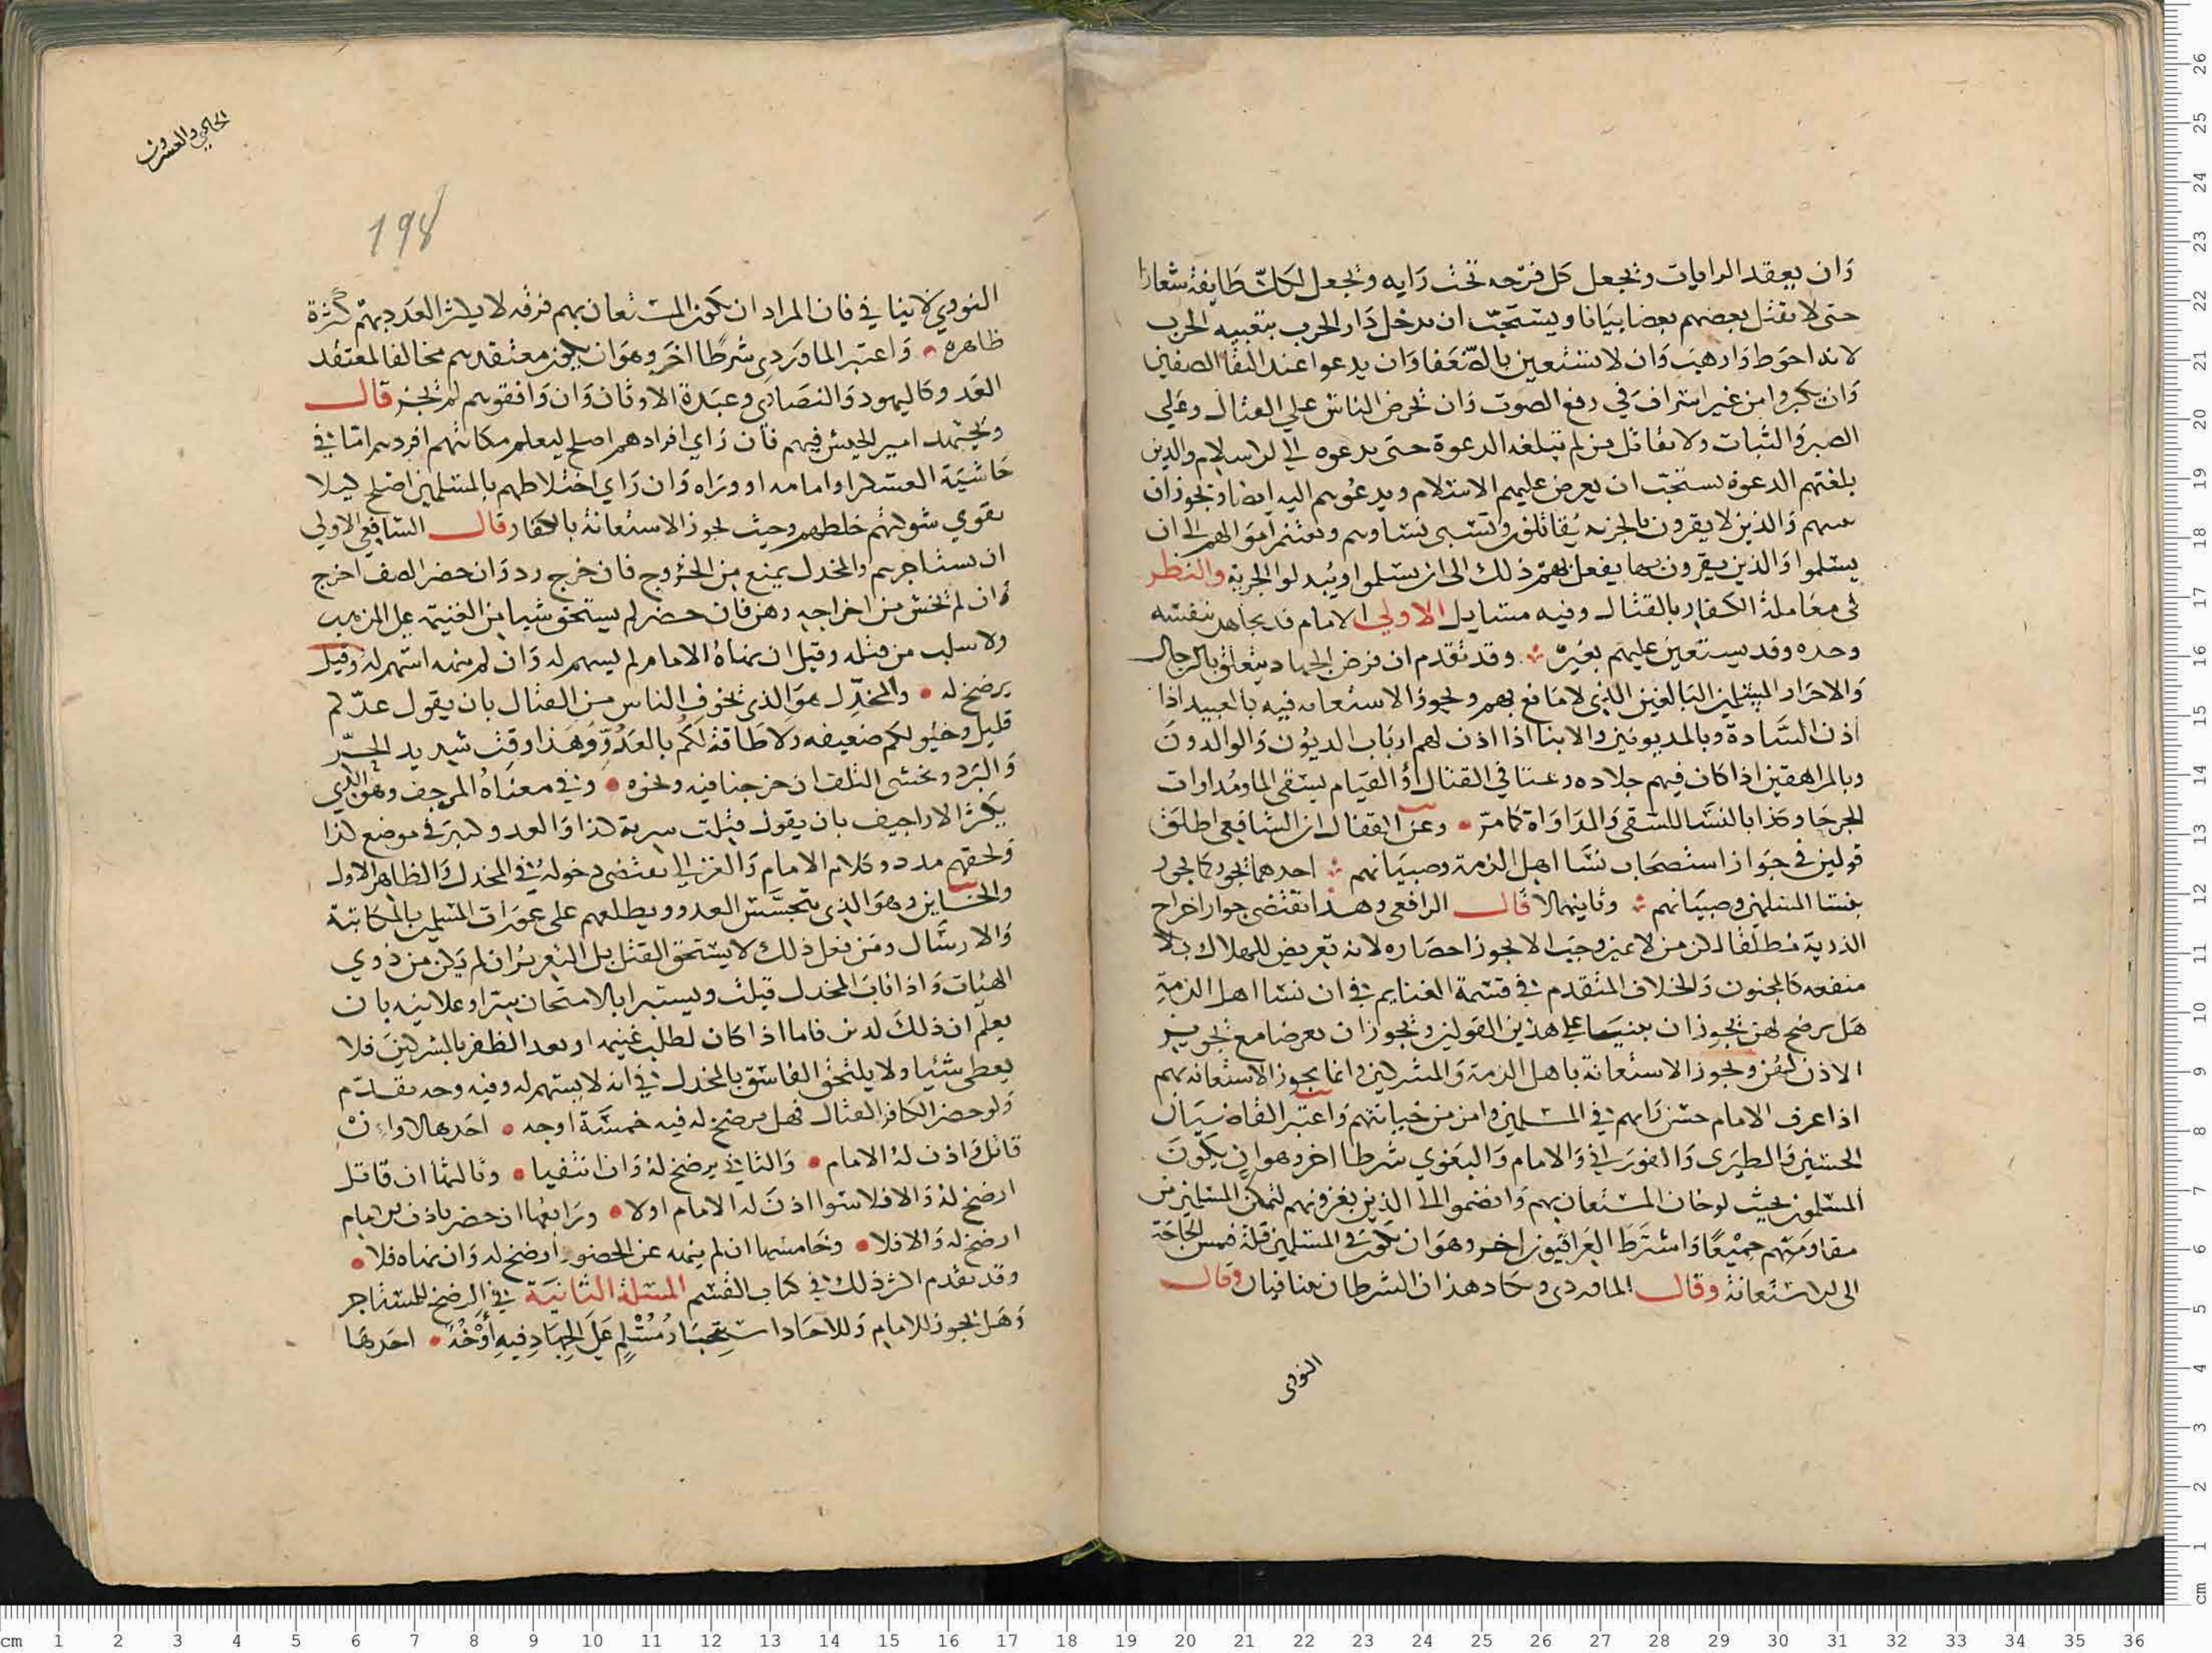 وان يعقد الرايات ويجعل كل فرقه تحت رايه ويجعل لكل طايفة شعارا
حتى لا يقتل بعضهم بعضا بياتا ويستحب ان يدخل دار الحرب بتعبيه الحرب
لانه احوط وارهب وان لا يستعين بالضعفا وان يدعوا عند التقا الصفين
وان يكبروا من غير اسراف في رفع الصوت وان يحرض الناس على القتال وعلى
الصبر والثبات ولا يقاتل من لم تبلغه الدعوة حتى يدعوه الى الاسلام والذين
بلغتهم الدعوة يستحب ان يعرض عليهم الاسلام ويدعوهم اليه ايضا ويجوز ان
منهم والذين لا يقرون بالجزيه يقاتلون وتسبى نساوهم وتغنم اموالهم الى ان
يسلموا والذين يقرون بها يفعل بهم ذلك الى ان يسلموا ويبدلوا الجزية والنظر
في معاملة الكفار بالقتال وفيه مسايل الاولى الامام قد يجاهد بنفسه
وحده وقد يستعين عليهم بغيره وقد تقدم ان فرض الجهاد يتعلق بالرجال
والاحرار المسلمين البالغين الذي لا مانع بهم ويجوز الاستعانه فيه بالعبيد اذا
اذن السادة وبالمديونين والابنا اذا اذن لهم ارباب الديون والوالدون
وبالمراهقين اذا كان فيهم جلاده وعنا في القتال او القيام يسقى الما ومداوات
الجرحا وكذا بالنسا للسقى والمداواة كما مر وعن القفال ان الشافعي اطلق
قولين في جواز استصحاب نسا اهل الذمة وصبيانهم احدهما يجوز كما يجوز
بنسا المسلمين وصبيانهم وثانيهما لا قال الرافعي وهذا يقتضى جواز اخراج
الذرية مطلقا لكن من لا تمييز وجب الا يجوز احضاره لانه تعريض للهلاك بلا
منفعه كالمجنون والخلاف المتقدم في قسمة الغنايم في ان نسا اهل الذمة
هل يرضخ لهن يجوز ان بنيا على هذين القولين ويجوز ان يعرضا مع تجويز
الاذن لهن ويجوز الاستعانة باهل الذمة والمشركين وانما يجوز الاستعانه بهم
اذا عرف الامام حسن رايهم في المسلمين وامن من خيانتهم واعتبر القاضيان
الحسين والطبرى والفوراني والامام والبغوي شرطا اخر وهو ان يكون
المسلمون بحيث لو خان المستعان بهم وانضموا الى الذين يغزونهم لتمكن المسلمين من
مقاومتهم جميعا واشترط العراقيون اخر وهو ان يكون في المسلمين قلة فتمس الحاجة
الى الاستعانة وقال الماوردى وكاد هذان الشرطان يتنافيان وقال
النووى
الحليمي والعشرون
198
النووي لا ينا في فان المراد ان يكون المستعان بهم فرقه لا يكثر العدد بهم كثرة
ظاهره واعتبر الماوردى شرطا اخر وهو ان يكون معتقدهم مخالفا لمعتقد
العدو كاليهود والنصارى وعبدة الاوثان وان وافقوهم لم يجز قال
ويجتهد امير الجيش فيهم فان راى افرادهم اصلح ليعلم مكانهم افردهم اما في
حاشية العسكر او امامه او وراه وان راى اختلاطهم بالمسلمين اصلح ليلا
تقوي شوكتهم خلطهم وحيث يجوز الاستعانة بالكفار قال الشافعي الاولى
ان يستاجرهم والمخذل يمنع من الخروج فان خرج رد وان حضر الصف اخرج
وان لم يخش من اخراجه وهن فان حضر لم يستحق شيا من الغنيمة على المذهب
ولا سلب من قتله وقيل ان نهاه الامام لم يسهم له وان لم ينهه اسهم له وقيل
يرضخ له والمخذل هو الذي يخوف الناس من القتال بان يقول عددكم
قليل وخيولكم ضعيفه ولا طاقة لكم بالعدو وهذا وقت شديد الحر
والبرد ونخشى التلف ان خرجنا فيه ونحوه وفي معناه المرجف وهو الذي
يكثر الاراجيف بان يقول قتلت سرية كذا والعدو كبير في موضع كذا
ولحقهم مدد وكلام الامام والغزالي يقتضى دخوله في المخذل والظاهر الاول
والخاين وهو الذي يتجسس للعدو ويطلعهم على عورات المسلمين بالمكاتبة
والارسال ومن فعل ذلك لا يستحق القتل بل التعزير ان لم يكن من ذوي
الهيات واذا تاب المخذل قبلت ويستبرا بالامتحان سرا وعلانيه بان
يعلم ان ذلك لدين فاما اذا كان لطلب غنيمه او بعد الظفر بالمشركين فلا
يعطى شيا ولا يلتحق الفاسق بالمخذل في انه لا يسهم له وفيه وجه تقدم
ولو حضر الكافر القتال فهل يرضخ له فيه خمسة اوجه احدها لا وان
قاتل واذن له الامام والثاني يرضخ له وان انتفيا وثالثها ان قاتل
ارضخ له والا فلا سوا اذن له الامام او لا ورابعها ان حضر باذن الامام
ارضخ له والا فلا وخامسها ان لم ينهه عن الحضور ارضخ له وان نهاه فلا
وقد تقدم اكثر ذلك في كتاب القسم المسلة الثانية في الرضخ للمستاجر
وهل يجوز للامام وللاحاد استيجار مسلم على الجهاد فيه اوجه احدها